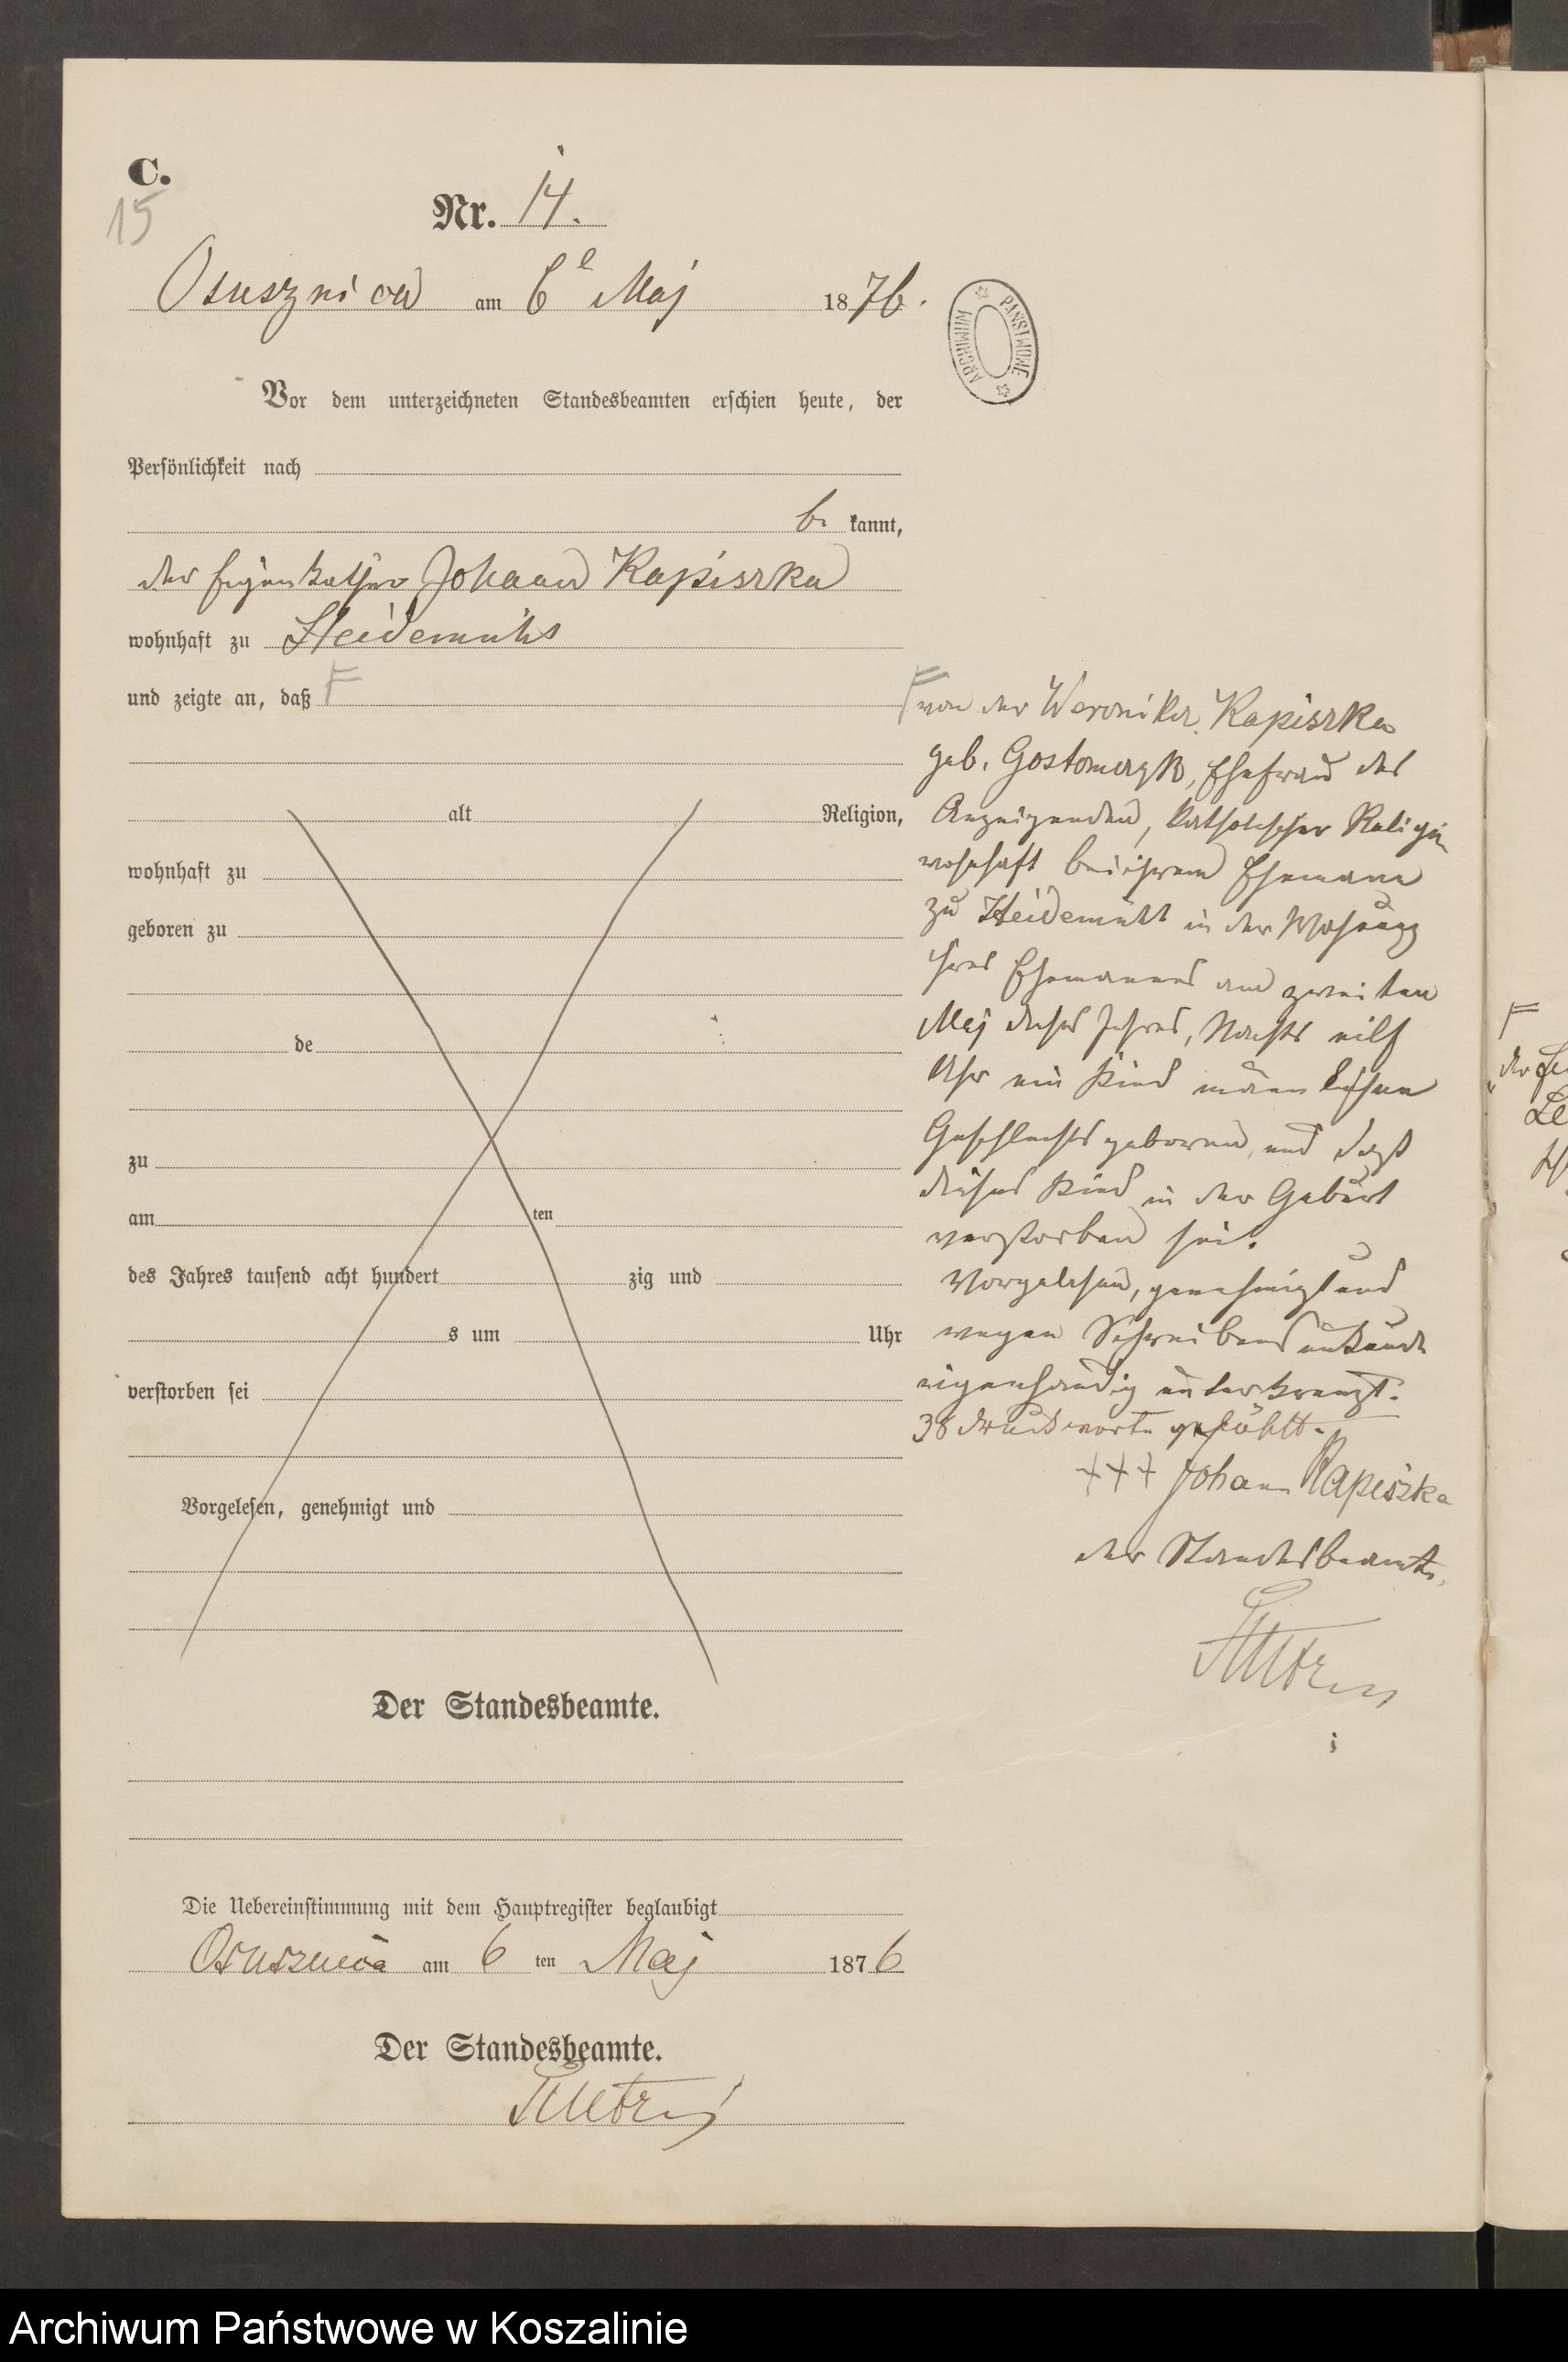 C.
15
Nr. 14.
Osusznica am 6t Maj 1876.
Vor dem unterzeichneten Standesbeamten erschien heute, der
Persönlichkeit nach
be kannt,
der Eigenkathner Johann Kapiszka
wohnhaft zu Heidemühl
und zeigte an, daß F
alt Religion,
wohnhaft zu
geboren zu
de
zu
am ten
des Jahres tausend acht hundert zig und
s um Uhr
verstorben sei
Vorgelesen, genehmigt und
Der Standesbeamte.
Die Uebereinstimmung mit dem Hauptregister beglaubigt
Osusznica am 6 ten Maj 1876
Der Standesbeamte.
PAŃSTWOWE
ARCHIWUM
F von der Weronika Kapiszka
geb. Gostomczyk, Ehefrau des
Anzeigenden, katholischer Religion
wohnhaft bei ihrem Ehemann
zu Heidemühl in der Wohnung
ihres Ehemannes am zweiten
Maj dieses Jahres, Nachts eilf
Uhr ein Kind männlichen
Geschlechts geboren, und daß
dieses Kind in der Geburt
verstorben sei.
Vorgelesen, genehmigt und
wegen Schreibens unkunde
eigenhändig unterkreuzt.
38 Druckworte gelöscht.
+++ Johann Kapiszka
der Standesbeamte.
F
der
Archiwum Państwowe w Koszalinie